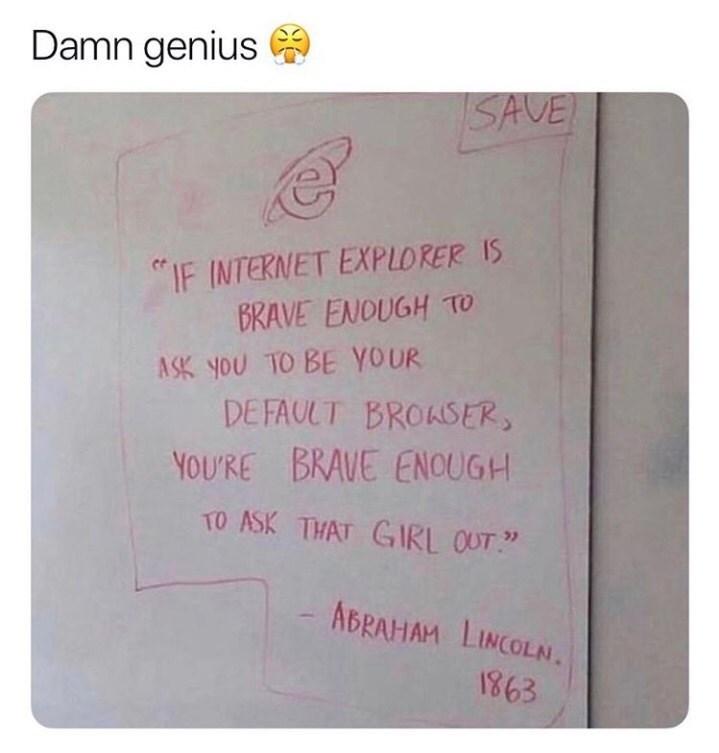 Damn genius 😤
SAVE
e
“IF INTERNET EXPLORER IS
BRAVE ENOUGH TO
ASK YOU TO BE YOUR
DEFAULT BROWSER,
YOU'RE BRAVE ENOUGH
TO ASK THAT GIRL OUT.”
- ABRAHAM LINCOLN.
1863